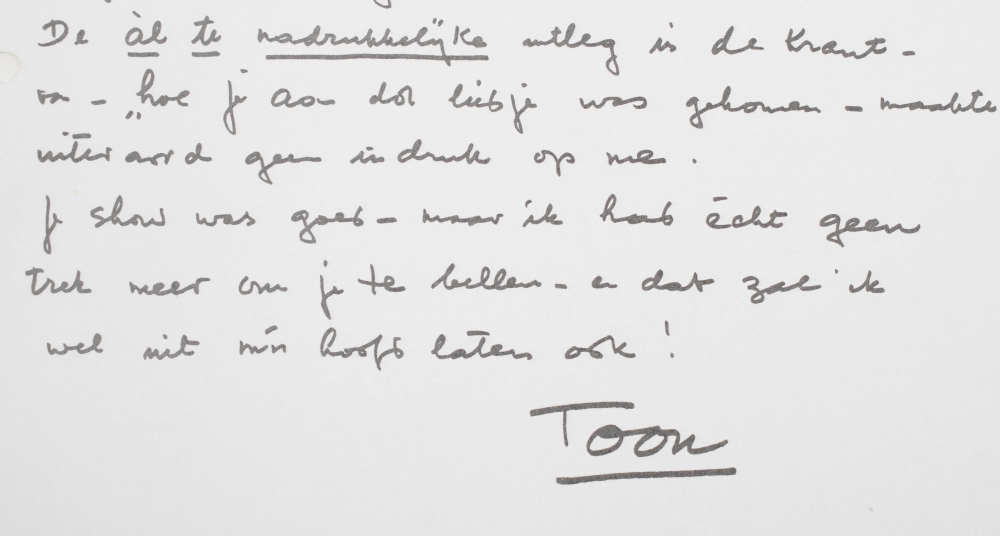 De àl te nadrukkelijke uitleg in de Krant -
van - „hoe je aan dat liedje was gekomen - maakte
uiteraard geen indruk op me.
Je show was goed - maar ik had écht geen
trek meer om je te bellen - en dat zal ik
wel uit m'n hoofd laten ook!
Toon